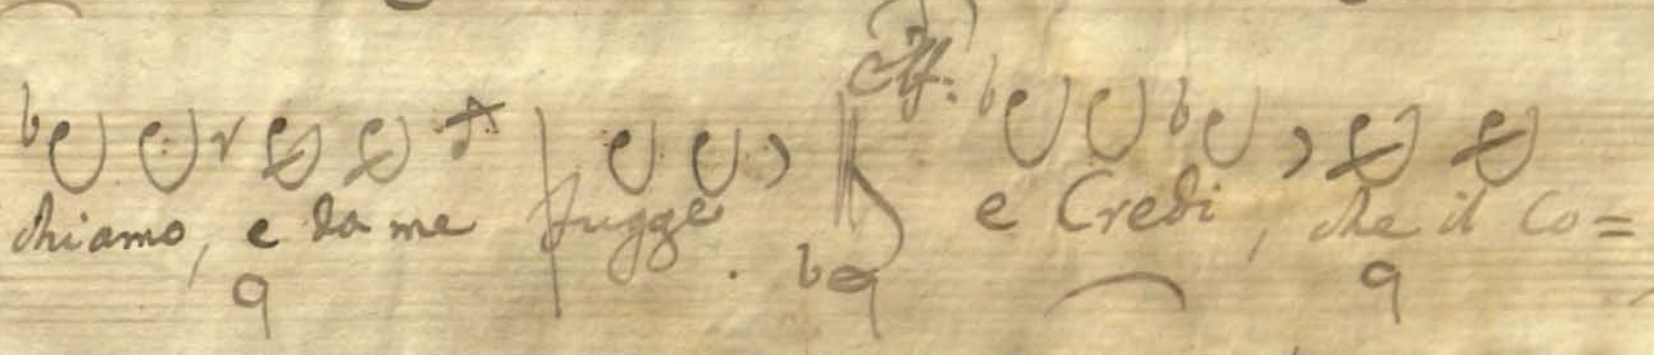 chiamo, e da me fugge. e Credi, che il Co=